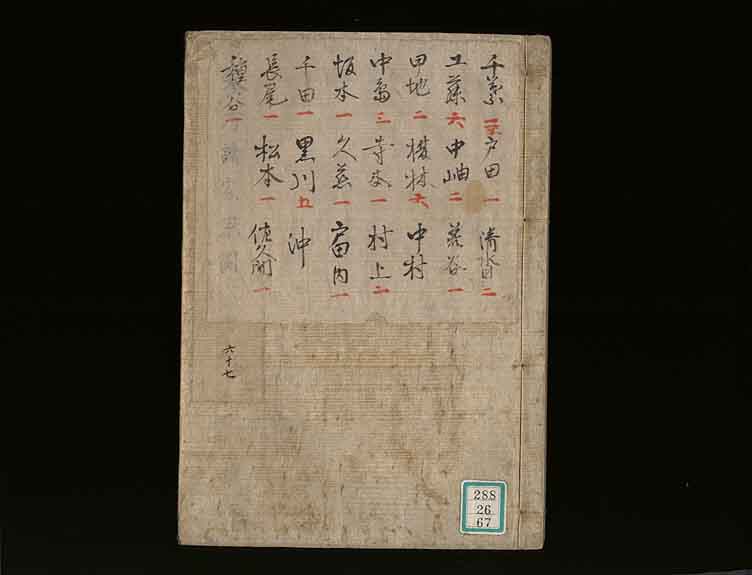 千葉 戸田 一 清水目 二
工藤 六 中岫 二 荒谷 一
甲地 二 六 中村
三 一 村上 二
坂本 一 久慈 一 内 一
千田 一 黒川 五 沖
長尾 一 松本 一 佐久間 一
種谷 一
六十七
288
26
67